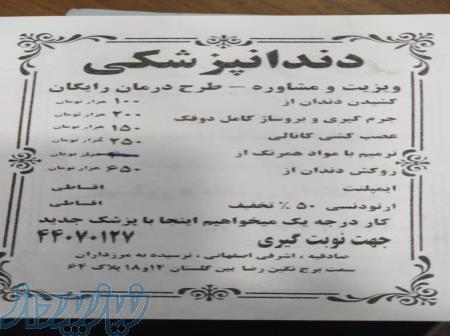 دندانپزشکی
ویزیت و مشاوره – طرح درمان رایگان
کشیدن دندان از ۱۰۰ هزار تومان
جرم گیری و بروساژ کامل دوفک ۲۰۰ هزار تومان
عصب کشی کانالی ۱۵۰ هزار تومان
۲۵۰ هزار تومان
ترمیم با مواد همرنگ از هزار تومان
روکش دندان از ۶۵۰ هزار تومان
ایمپلنت اقساطی
ارتودنسی ۵۰٪ تخفیف اقساطی
کار درجه یک میخواهیم اینجا با پزشک جدید
جهت نوبت گیری ۴۴۰۷۰۱۲۷
صادقیه ، اشرفی اصفهانی ، نرسیده به مرزداران
سمت برج نگین رضا بین گلستان ۱۴و۱۸ پلاک ۶۴